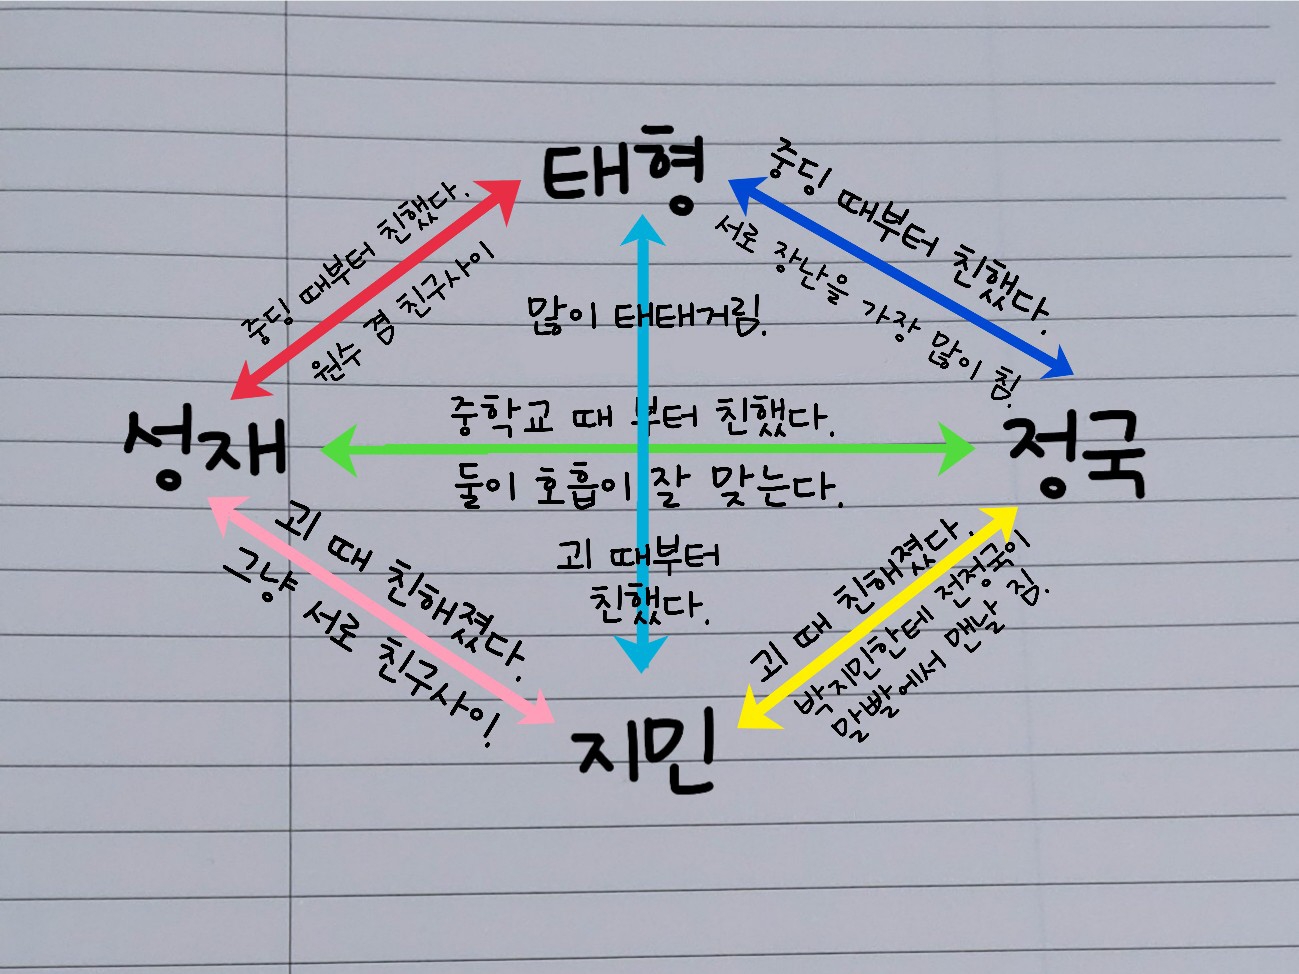 태형
중딩 때부터 친했다.
원수 겸 친구사이
중딩 때부터 친했다.
서로 장난을 가장 많이 침.
많이 태태거림.
성재
중학교 때 부터 친했다.
둘이 호흡이 잘 맞는다.
정국
괴 때부터
친했다.
괴 때 친해졌다.
그냥 서로 친구사이.
괴 때 친해졌다.
박지민한테 전정국이
말빨에서 맨날 짐.
지민